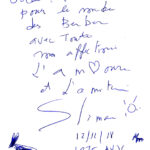 pour le monde
des Berber
avec Toute
mon affection
L'am♡our
et L'amitié
Slimani
12/11/18